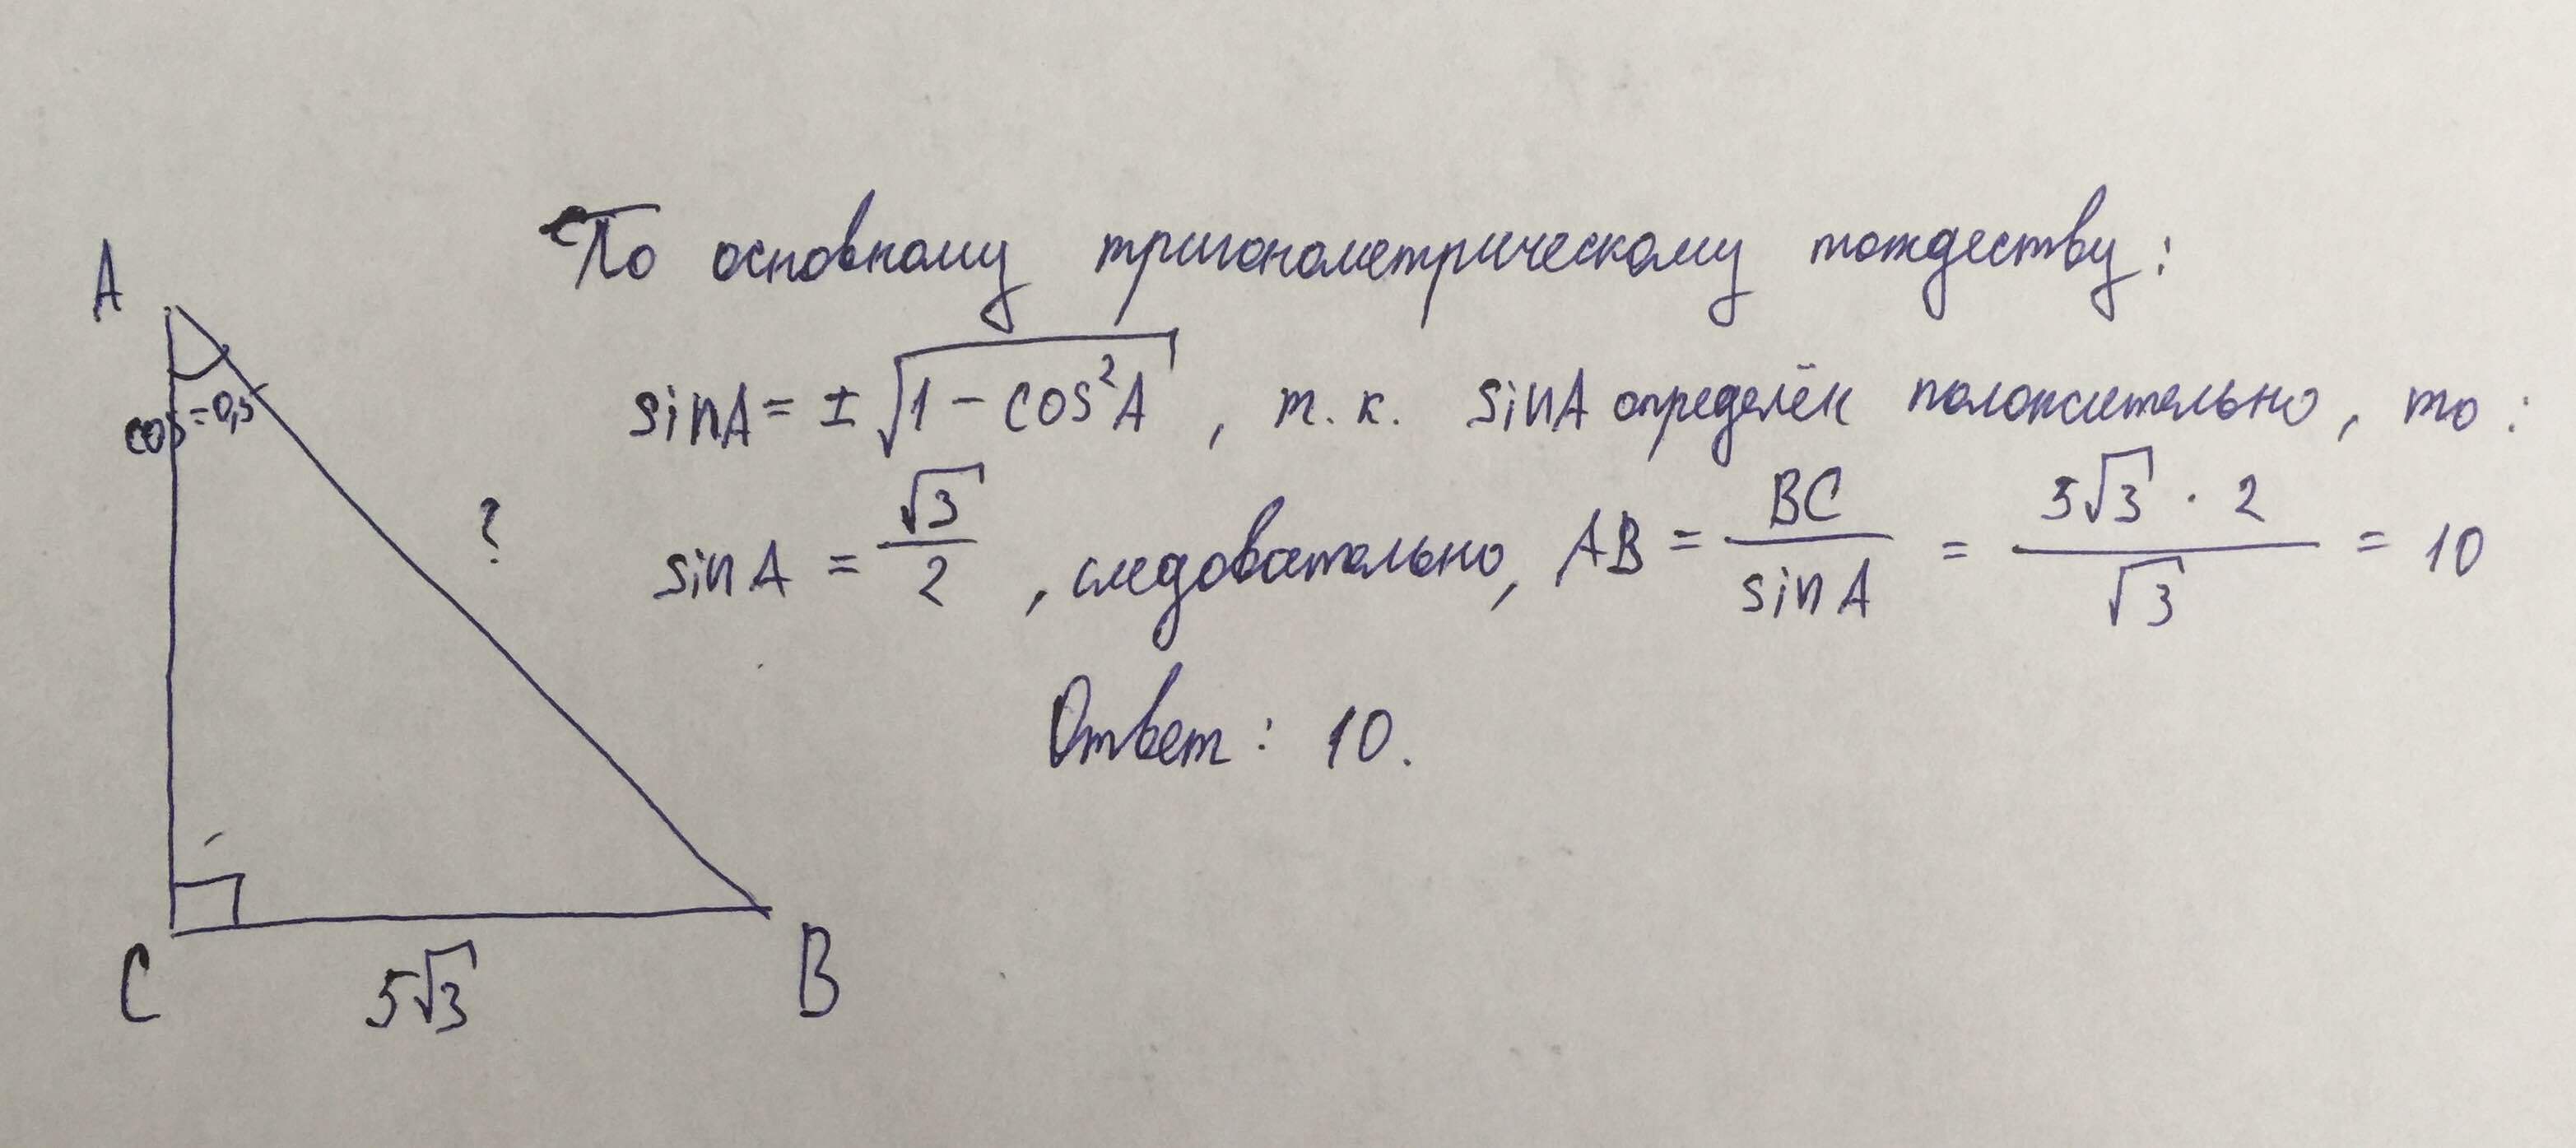 По основному тригонометрическому тождеству:
A
sinA = ± √(1 − cos²A) , т. к. sinA определён положительно, то:
cos = 0,5
?
sin A = √3/2 , следовательно, AB = BC/sin A = 5√3 · 2/√3 = 10
Ответ: 10.
C
5√3
B